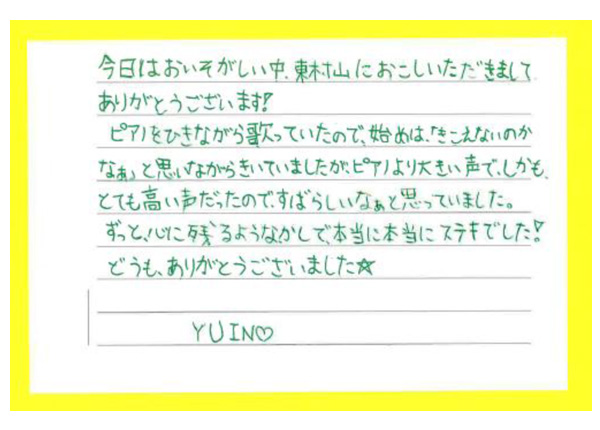 今日はおいそがしい中、東村山におこしいただきまして
ありがとうございます!
ピアノをひきながら歌っていたので、始めは、「きこえないのか
なぁ」と思いながらきいていましたが、ピアノより大きい声で、しかも、
とても高い声だったので、すばらしいなぁと思っていました。
ずっと、心に残るようなかしで、本当に本当にステキでした!
どうも、ありがとうございました☆
YUINO♡